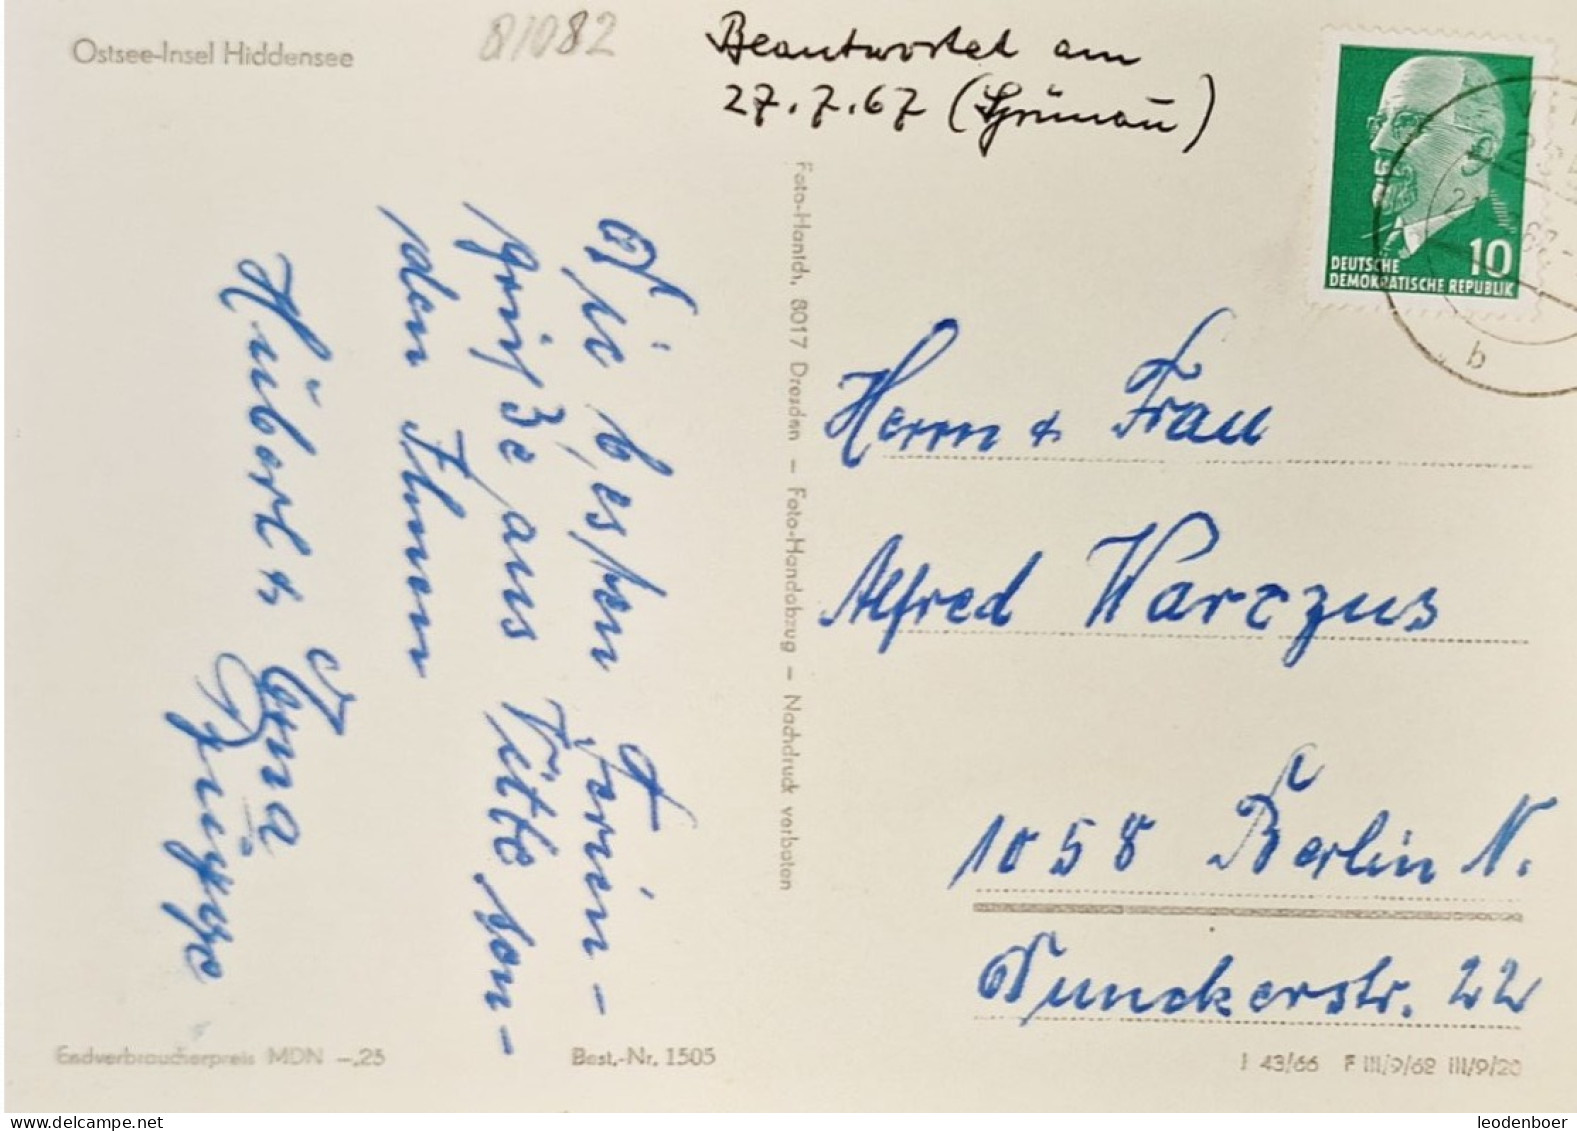 Ostsee-Insel Hiddensee
81082
Beantwortet am
27.7.67 (Grünau)
DEUTSCHE
DEMOKRATISCHE REPUBLIK
10
b
Die besten Ferien-
grüße aus Vitte sen-
den Ihnen
Hubert + Erna
Foto-Hanich, 8017 Dresden – Foto-Handabzug – Nachdruck verboten
Herrn + Frau
Alfred Warczus
1058 Berlin N.
Dunckerstr. 22
Endverbraucherpreis MDN –,25
Best.-Nr. 1505
J 43/66 F III/9/62 III/9/20
leodenboer